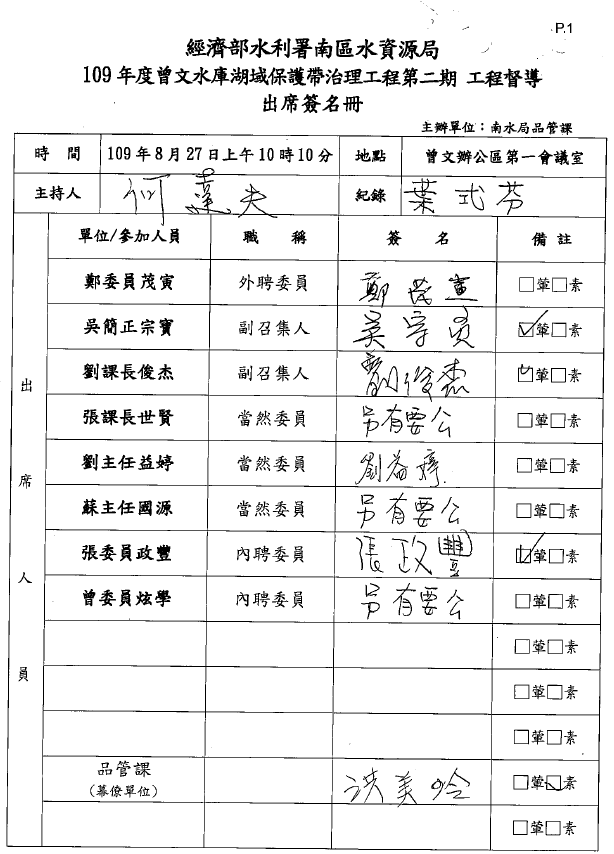 P.1
經濟部水利署南區水資源局
109年度曾文水庫湖域保護帶治理工程第二期 工程督導
出席簽名冊
主辦單位：南水局品管課
時 間 109年8月27日上午10時10分 地點 曾文辦公區第一會議室
主持人 何達夫 紀錄 葉式芬
出席人員
單位/參加人員 職 稱 簽 名 備 註
鄭委員茂寅 外聘委員 鄭茂寅 □葷□素
吳簡正宗寶 副召集人 吳宗寶 ☑葷□素
劉課長俊杰 副召集人 劉俊杰 ☑葷□素
張課長世賢 當然委員 另有要公 □葷□素
劉主任益婷 當然委員 劉益婷 □葷□素
蘇主任國源 當然委員 另有要公 □葷□素
張委員政豐 內聘委員 張政豐 ☑葷□素
曾委員炫學 內聘委員 另有要公 □葷□素
□葷□素
□葷□素
□葷□素
品管課 洪美玲 □葷☑素
(幕僚單位)
□葷□素